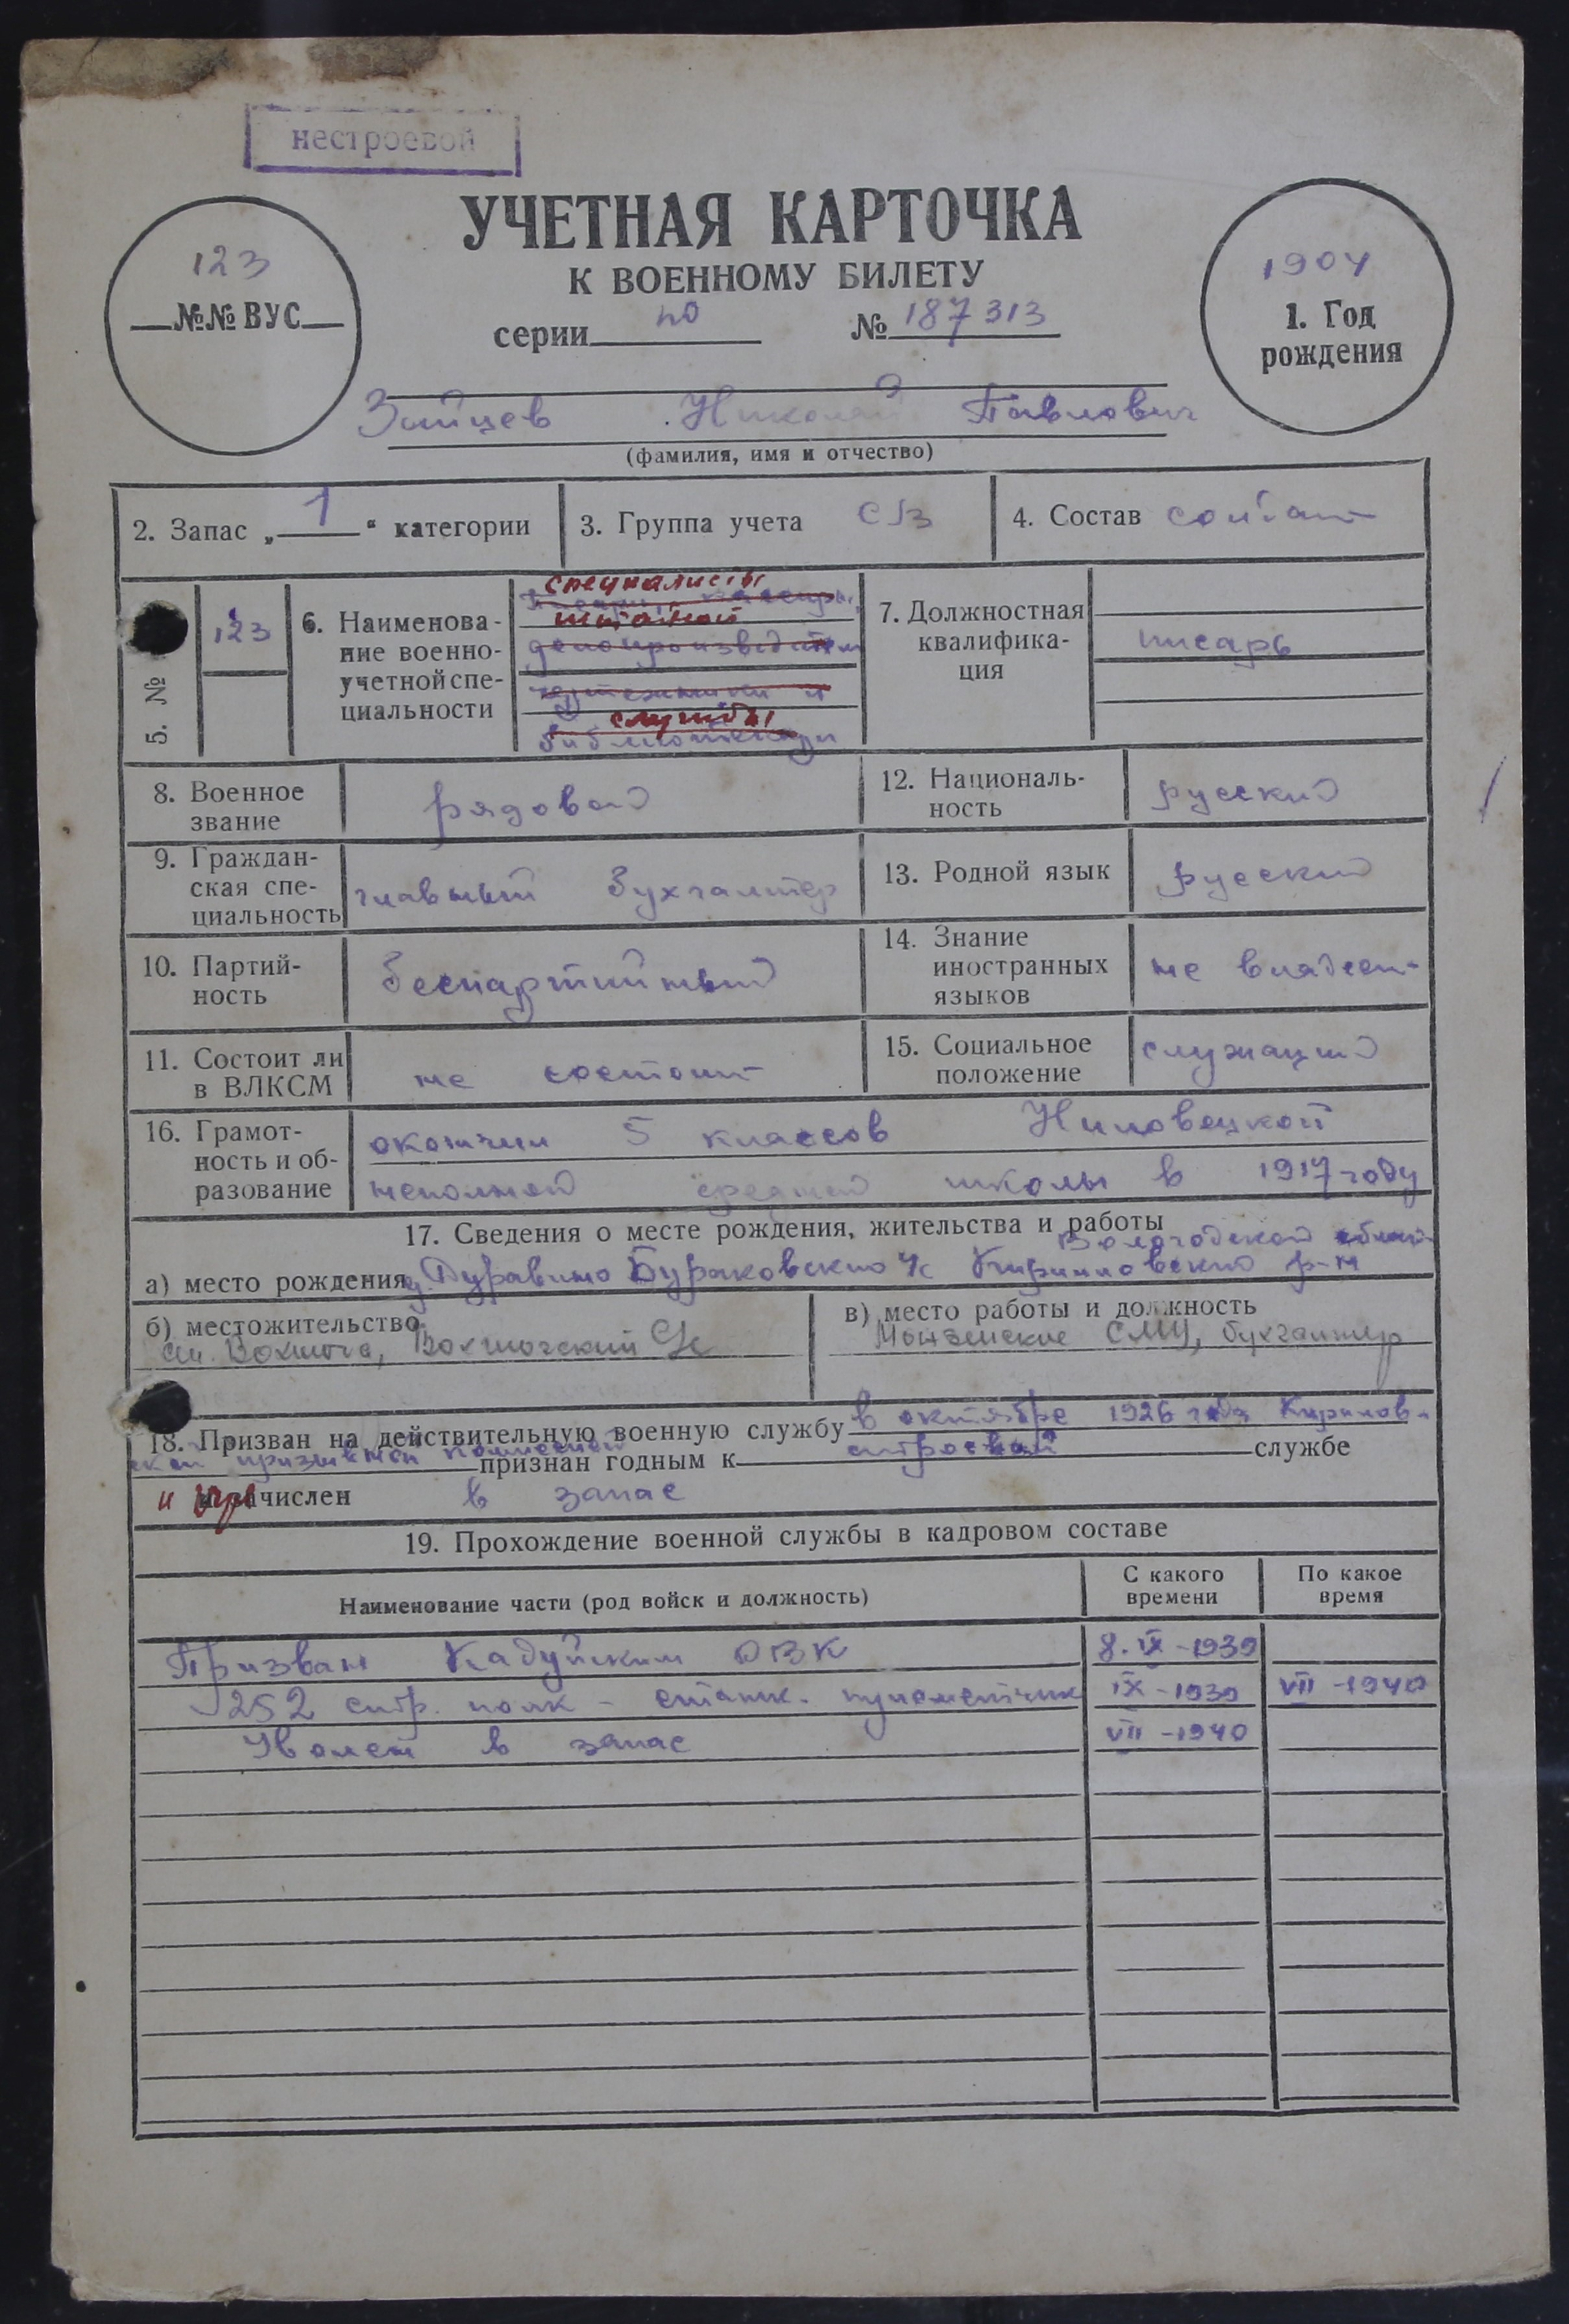 нестроевой
УЧЕТНАЯ КАРТОЧКА
К ВОЕННОМУ БИЛЕТУ
серии по № 187313
123
№№ ВУС
1904
1. Год
рождения
Зайцев Николай Павлович
(фамилия, имя и отчество)
2. Запас „ 1 “ категории
3. Группа учета СВ
4. Состав солдат
5. №
123
6. Наименова-
ние военно-
учетной спе-
циальности
специалисты
писаря, кассиры,
штабной
делопроизводители
чертежники и
службы
библиотекари
7. Должностная
квалифика-
ция
писарь
8. Военное
звание
рядовой
12. Националь-
ность
русский
9. Граждан-
ская спе-
циальность
главный бухгалтер
13. Родной язык
русский
10. Партий-
ность
беспартийный
14. Знание
иностранных
языков
не владеет
11. Состоит ли
в ВЛКСМ
не состоит
15. Социальное
положение
служащий
16. Грамот-
ность и об-
разование
окончил 5 классов Ниловецкой
неполной средней школы в 1917 году
17. Сведения о месте рождения, жительства и работы
Вологодской област
а) место рождения д. Дуравино Бураковский с/с Кирилловский р-н
б) местожительство
ст. Вохтога, Вохтожский с/с
в) место работы и должность
Монзенские СМУ, бухгалтер
18. Призван на действительную военную службу в октябре 1926 года Кирилов-
ской призывной комиссией признан годным к строевой службе
и зачислен в запас
19. Прохождение военной службы в кадровом составе
Наименование части (род войск и должность)
С какого
времени
По какое
время
Призван Кадуйским ОВК 8.IX-1939
252 стр. полк - станк. пулеметчик IX-1939 VII-1940
Уволен в запас VII-1940